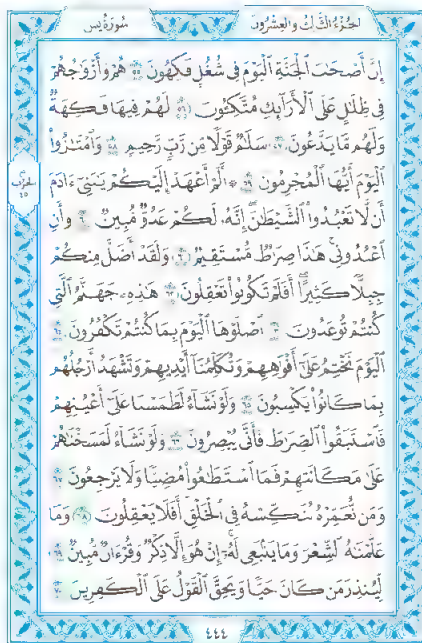 سُورَةُ يسٓ
الجُزءُ الثَّالِثُ وَالعِشْرُونَ
إِنَّ أَصْحَٰبَ ٱلْجَنَّةِ ٱلْيَوْمَ فِى شُغُلٍ فَٰكِهُونَ ٥٥ هُمْ وَأَزْوَٰجُهُمْ
فِى ظِلَٰلٍ عَلَى ٱلْأَرَآئِكِ مُتَّكِـُٔونَ ٥٦ لَهُمْ فِيهَا فَٰكِهَةٌ
وَلَهُم مَّا يَدَّعُونَ ٥٧ سَلَٰمٌ قَوْلًا مِّن رَّبٍّ رَّحِيمٍ ٥٨ وَٱمْتَٰزُوا۟
ٱلْيَوْمَ أَيُّهَا ٱلْمُجْرِمُونَ ٥٩ ۞ أَلَمْ أَعْهَدْ إِلَيْكُمْ يَٰبَنِىٓ ءَادَمَ
أَن لَّا تَعْبُدُوا۟ ٱلشَّيْطَٰنَ إِنَّهُۥ لَكُمْ عَدُوٌّ مُّبِينٌ ٦٠ وَأَنِ
ٱعْبُدُونِى هَٰذَا صِرَٰطٌ مُّسْتَقِيمٌ ٦١ وَلَقَدْ أَضَلَّ مِنكُمْ
جِبِلًّا كَثِيرًا أَفَلَمْ تَكُونُوا۟ تَعْقِلُونَ ٦٢ هَٰذِهِۦ جَهَنَّمُ ٱلَّتِى
كُنتُمْ تُوعَدُونَ ٦٣ ٱصْلَوْهَا ٱلْيَوْمَ بِمَا كُنتُمْ تَكْفُرُونَ ٦٤
ٱلْيَوْمَ نَخْتِمُ عَلَىٰٓ أَفْوَٰهِهِمْ وَتُكَلِّمُنَآ أَيْدِيهِمْ وَتَشْهَدُ أَرْجُلُهُم
بِمَا كَانُوا۟ يَكْسِبُونَ ٦٥ وَلَوْ نَشَآءُ لَطَمَسْنَا عَلَىٰٓ أَعْيُنِهِمْ
فَٱسْتَبَقُوا۟ ٱلصِّرَٰطَ فَأَنَّىٰ يُبْصِرُونَ ٦٦ وَلَوْ نَشَآءُ لَمَسَخْنَٰهُمْ
عَلَىٰ مَكَانَتِهِمْ فَمَا ٱسْتَطَٰعُوا۟ مُضِيًّا وَلَا يَرْجِعُونَ ٦٧
وَمَن نُّعَمِّرْهُ نُنَكِّسْهُ فِى ٱلْخَلْقِ أَفَلَا يَعْقِلُونَ ٦٨ وَمَا
عَلَّمْنَٰهُ ٱلشِّعْرَ وَمَا يَنۢبَغِى لَهُۥٓ إِنْ هُوَ إِلَّا ذِكْرٌ وَقُرْءَانٌ مُّبِينٌ ٦٩
لِّيُنذِرَ مَن كَانَ حَيًّا وَيَحِقَّ ٱلْقَوْلُ عَلَى ٱلْكَٰفِرِينَ ٧٠
الحزب
٤٥
٤٤٤